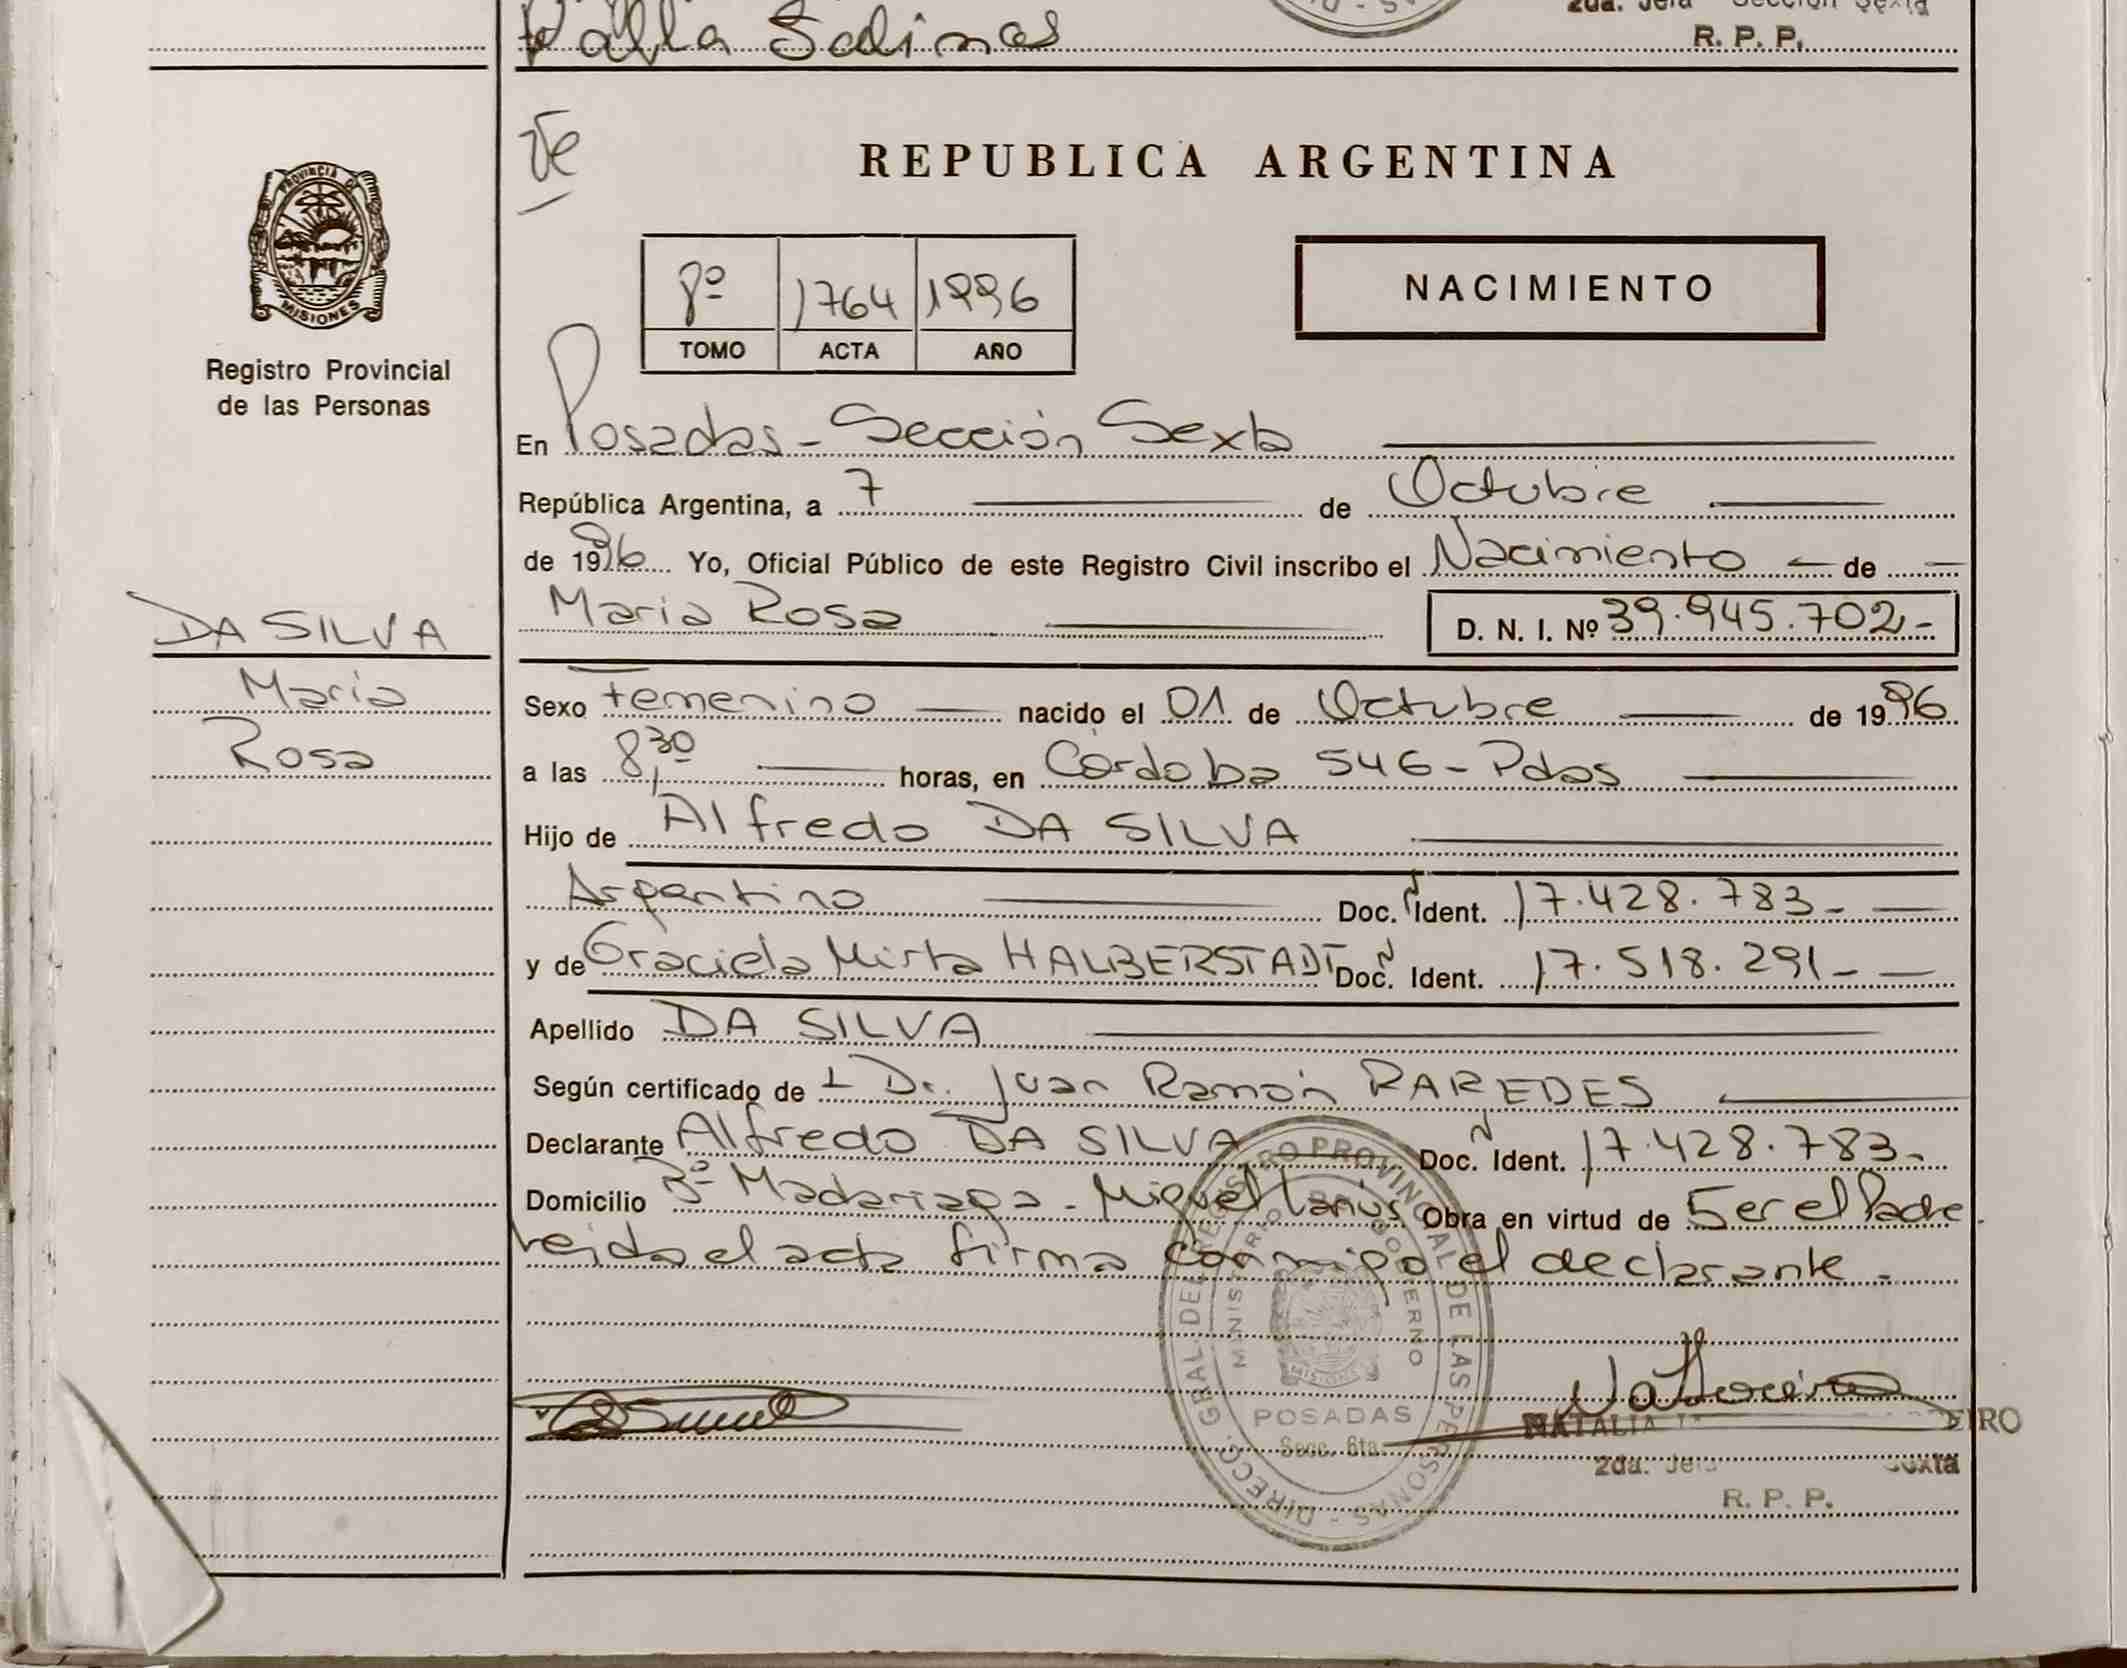 Salinas
2da. Jefa Sección Sexta
R. P. P.
PROVINCIA DE
MISIONES
Registro Provincial
de las Personas
DA SILVA
Maria
Rosa
REPUBLICA ARGENTINA
8º 1764 1996
TOMO ACTA AÑO
NACIMIENTO
En Posadas - Sección Sexta
República Argentina, a 7 de Octubre
de 1996 Yo, Oficial Público de este Registro Civil inscribo el Nacimiento de
Maria Rosa D. N. I. Nº 39.945.702-
Sexo Femenino nacido el 01 de Octubre de 1996
a las 8,30 horas, en Córdoba 546 - Pdas
Hijo de Alfredo DA SILVA
Argentino Doc. Ident. 17.428.783-
y de Graciela Mirta HALBERSTADT Doc. Ident. 17.518.291-
Apellido DA SILVA
Según certificado de Dr. Juan Ramón PAREDES
Declarante Alfredo DA SILVA Doc. Ident. 17.428.783-
Domicilio Bº Madariaga - Miguel Lanus Obra en virtud de Ser el Padre.
Leida el acta firma conmigo el declarante.
DIRECC. GRAL. DEL REGISTRO PROVINCIAL DE LAS PERSONAS
MINISTERIO DE GOBIERNO
MISIONES
POSADAS
Secc. 6ta.
NATALIA
2da. Jefa Sexta
R. P. P.